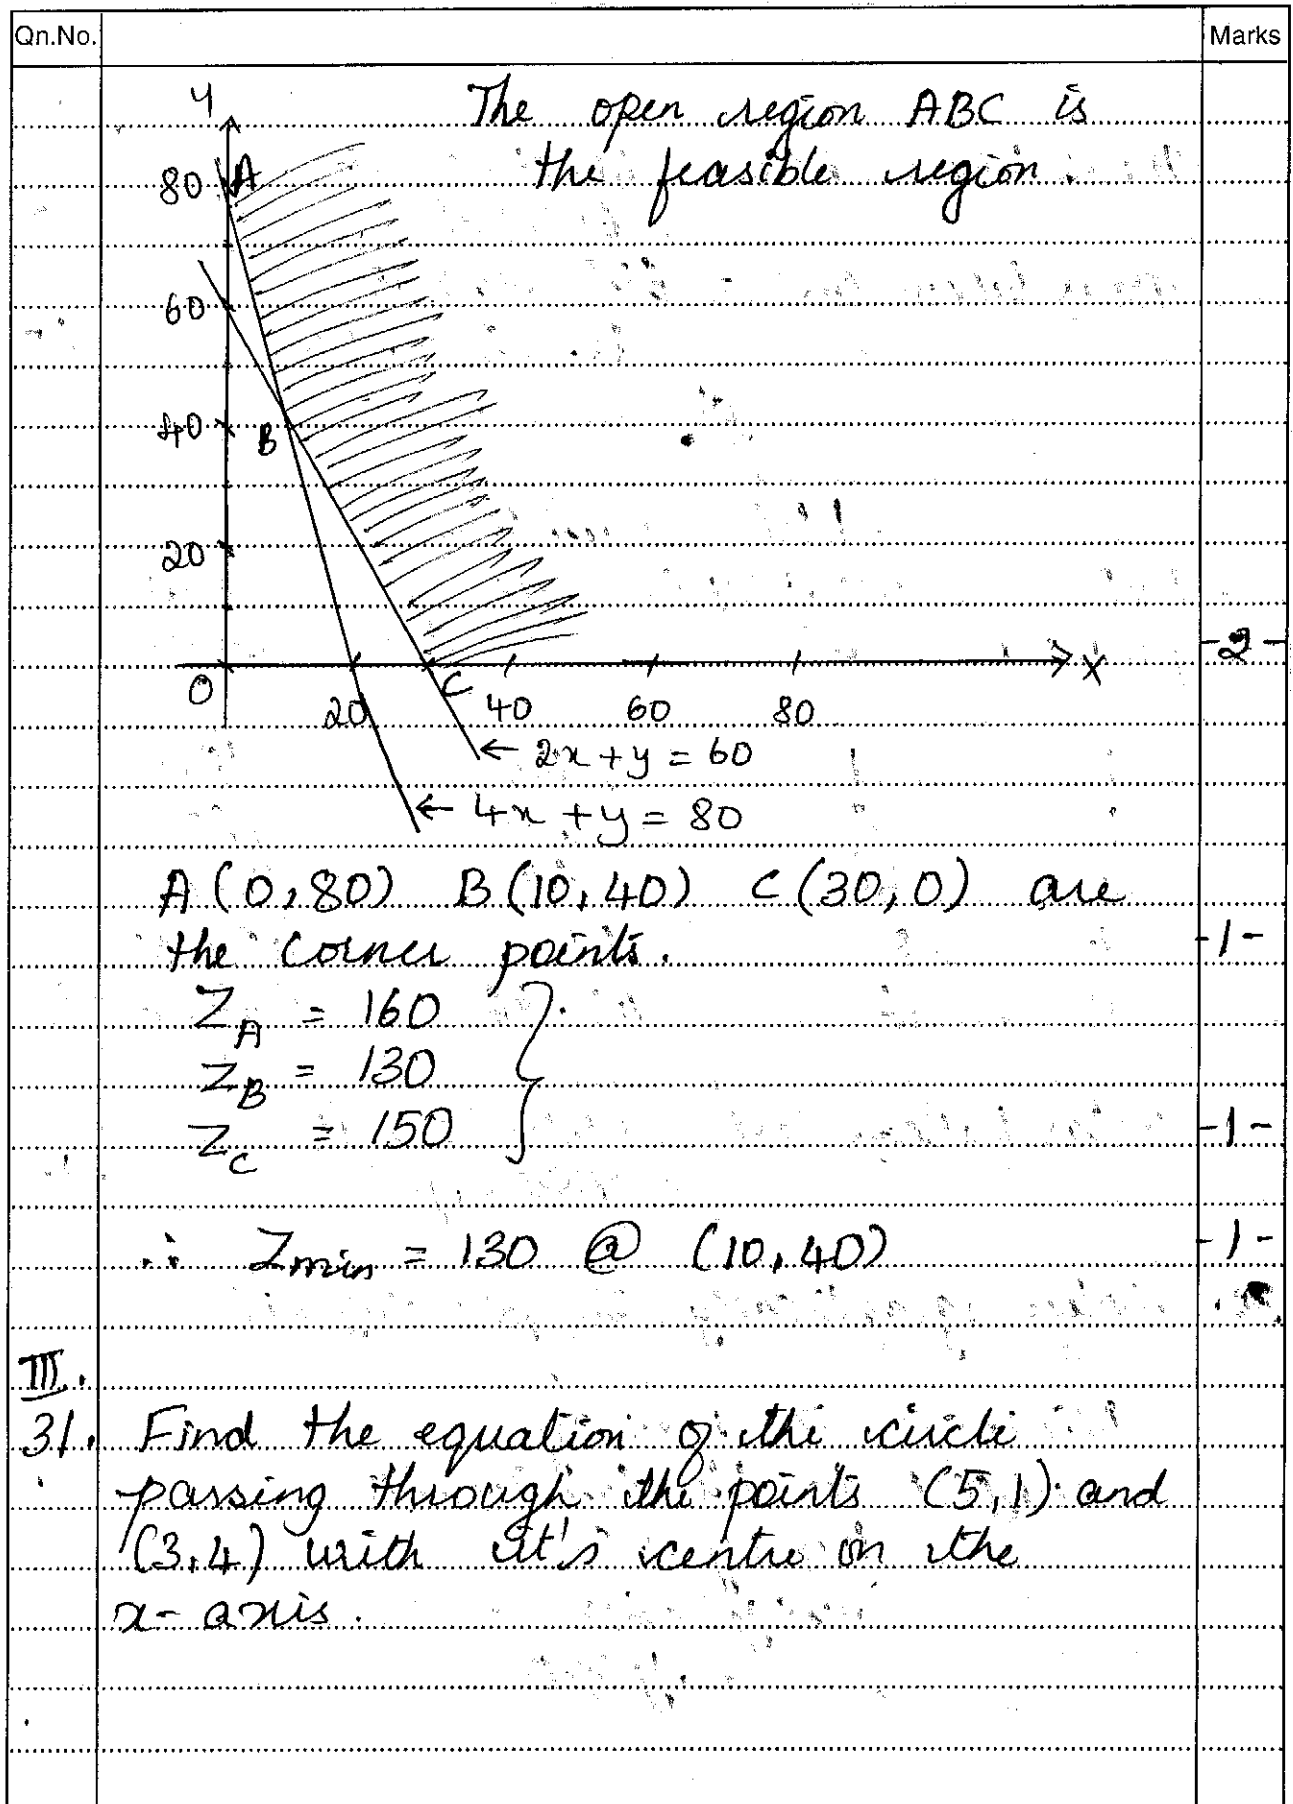 Qn.No. Marks
y
The open region ABC is
the feasible region.
80 A
60
40 B
20
-2-
O 20 C 40 60 80 X
← 2x + y = 60
← 4x + y = 80
A(0,80) B(10,40) C(30,0) are
the corner points. -1-
Z_A = 160
Z_B = 130
Z_C = 150 -1-
∴ Zmin = 130 @ (10,40) -1-
III.
31. Find the equation of the circle
passing through the points (5,1) and
(3,4) with it's centre on the
x-axis.